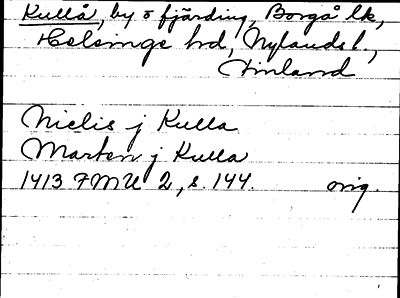 Kullå, by o fjärding, Borgå lk,
Helsinge hd, Nylands l.,
Finland
Nielis j Kulla
Marten j Kulla
1413 FMU 2, s. 144. orig.